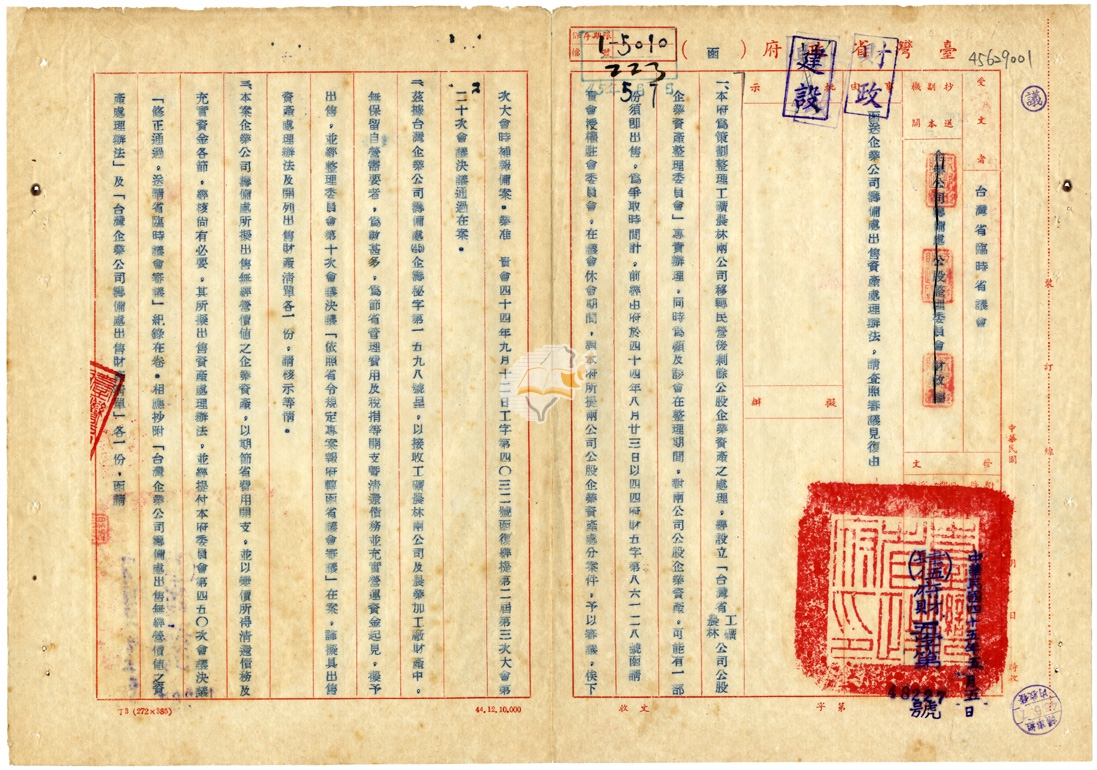 45629001
議
臺灣省政府（函）
財政
建設
1-5010
223
57
受文者
台灣省臨時省議會
抄送
副本
機關
事由
函送企業公司籌備處出售資產處理辦法，請查照審議見復由
批示
擬辦
發文
中華民國
中華民國四十五年五月五日
48227號
字第
收文
裝訂線
一、本府為策劃整理工礦農林兩公司移轉民營後剩餘公股企業資產之處理，專設立「台灣省工礦農林公司公股
企業資產整理委員會」專責辦理，同時為顧及該會在整理期間，對兩公司公股企業資產，可能有一部
份須即出售，為爭取時間計，前經由府於四十四年八月廿三日以四四府財五字第八六一二八號函請
貴會授權駐會委員會，在議會休會期間，對本府所提兩公司公股企業資產處分案件，予以審議，俟下
次大會時補報備案。舉准　貴會四十四年九月十三日工字第四〇三二號函復經提第二屆第三次大會第
二十次會議決議通過在案。
二、茲據台灣企業公司籌備處企籌秘字第一五九八號呈，以接收工礦農林兩公司及農業加工廠財產中。
無保留自營需要者，為數甚多，為節省管理費用及稅捐等開支暨清還債務並充實營運資金起見，擬予
出售，並經整理委員會第十次會議決議「依照省令規定專案報府轉函省議會審議」在案，謹擬具出售
資產處理辦法及開列出售財產清單各一份，請核示等情。
三、本案企業公司籌備處所擬出售無經營價值之企業資產，以期節省費用開支，並以變價所得清還債務及
充實資金各節，尋核尚有必要，其所擬出售資產處理辦法，並經提付本府委員會第四五〇次會議決議
「修正通過，送請省臨時議會審議」紀錄在卷。相應抄附「台灣企業公司籌備處出售無經營價值之資
產處理辦法」及「台灣企業公司籌備處出售財產清單」各一份，函請
73 (272×385)
44.12.10.000